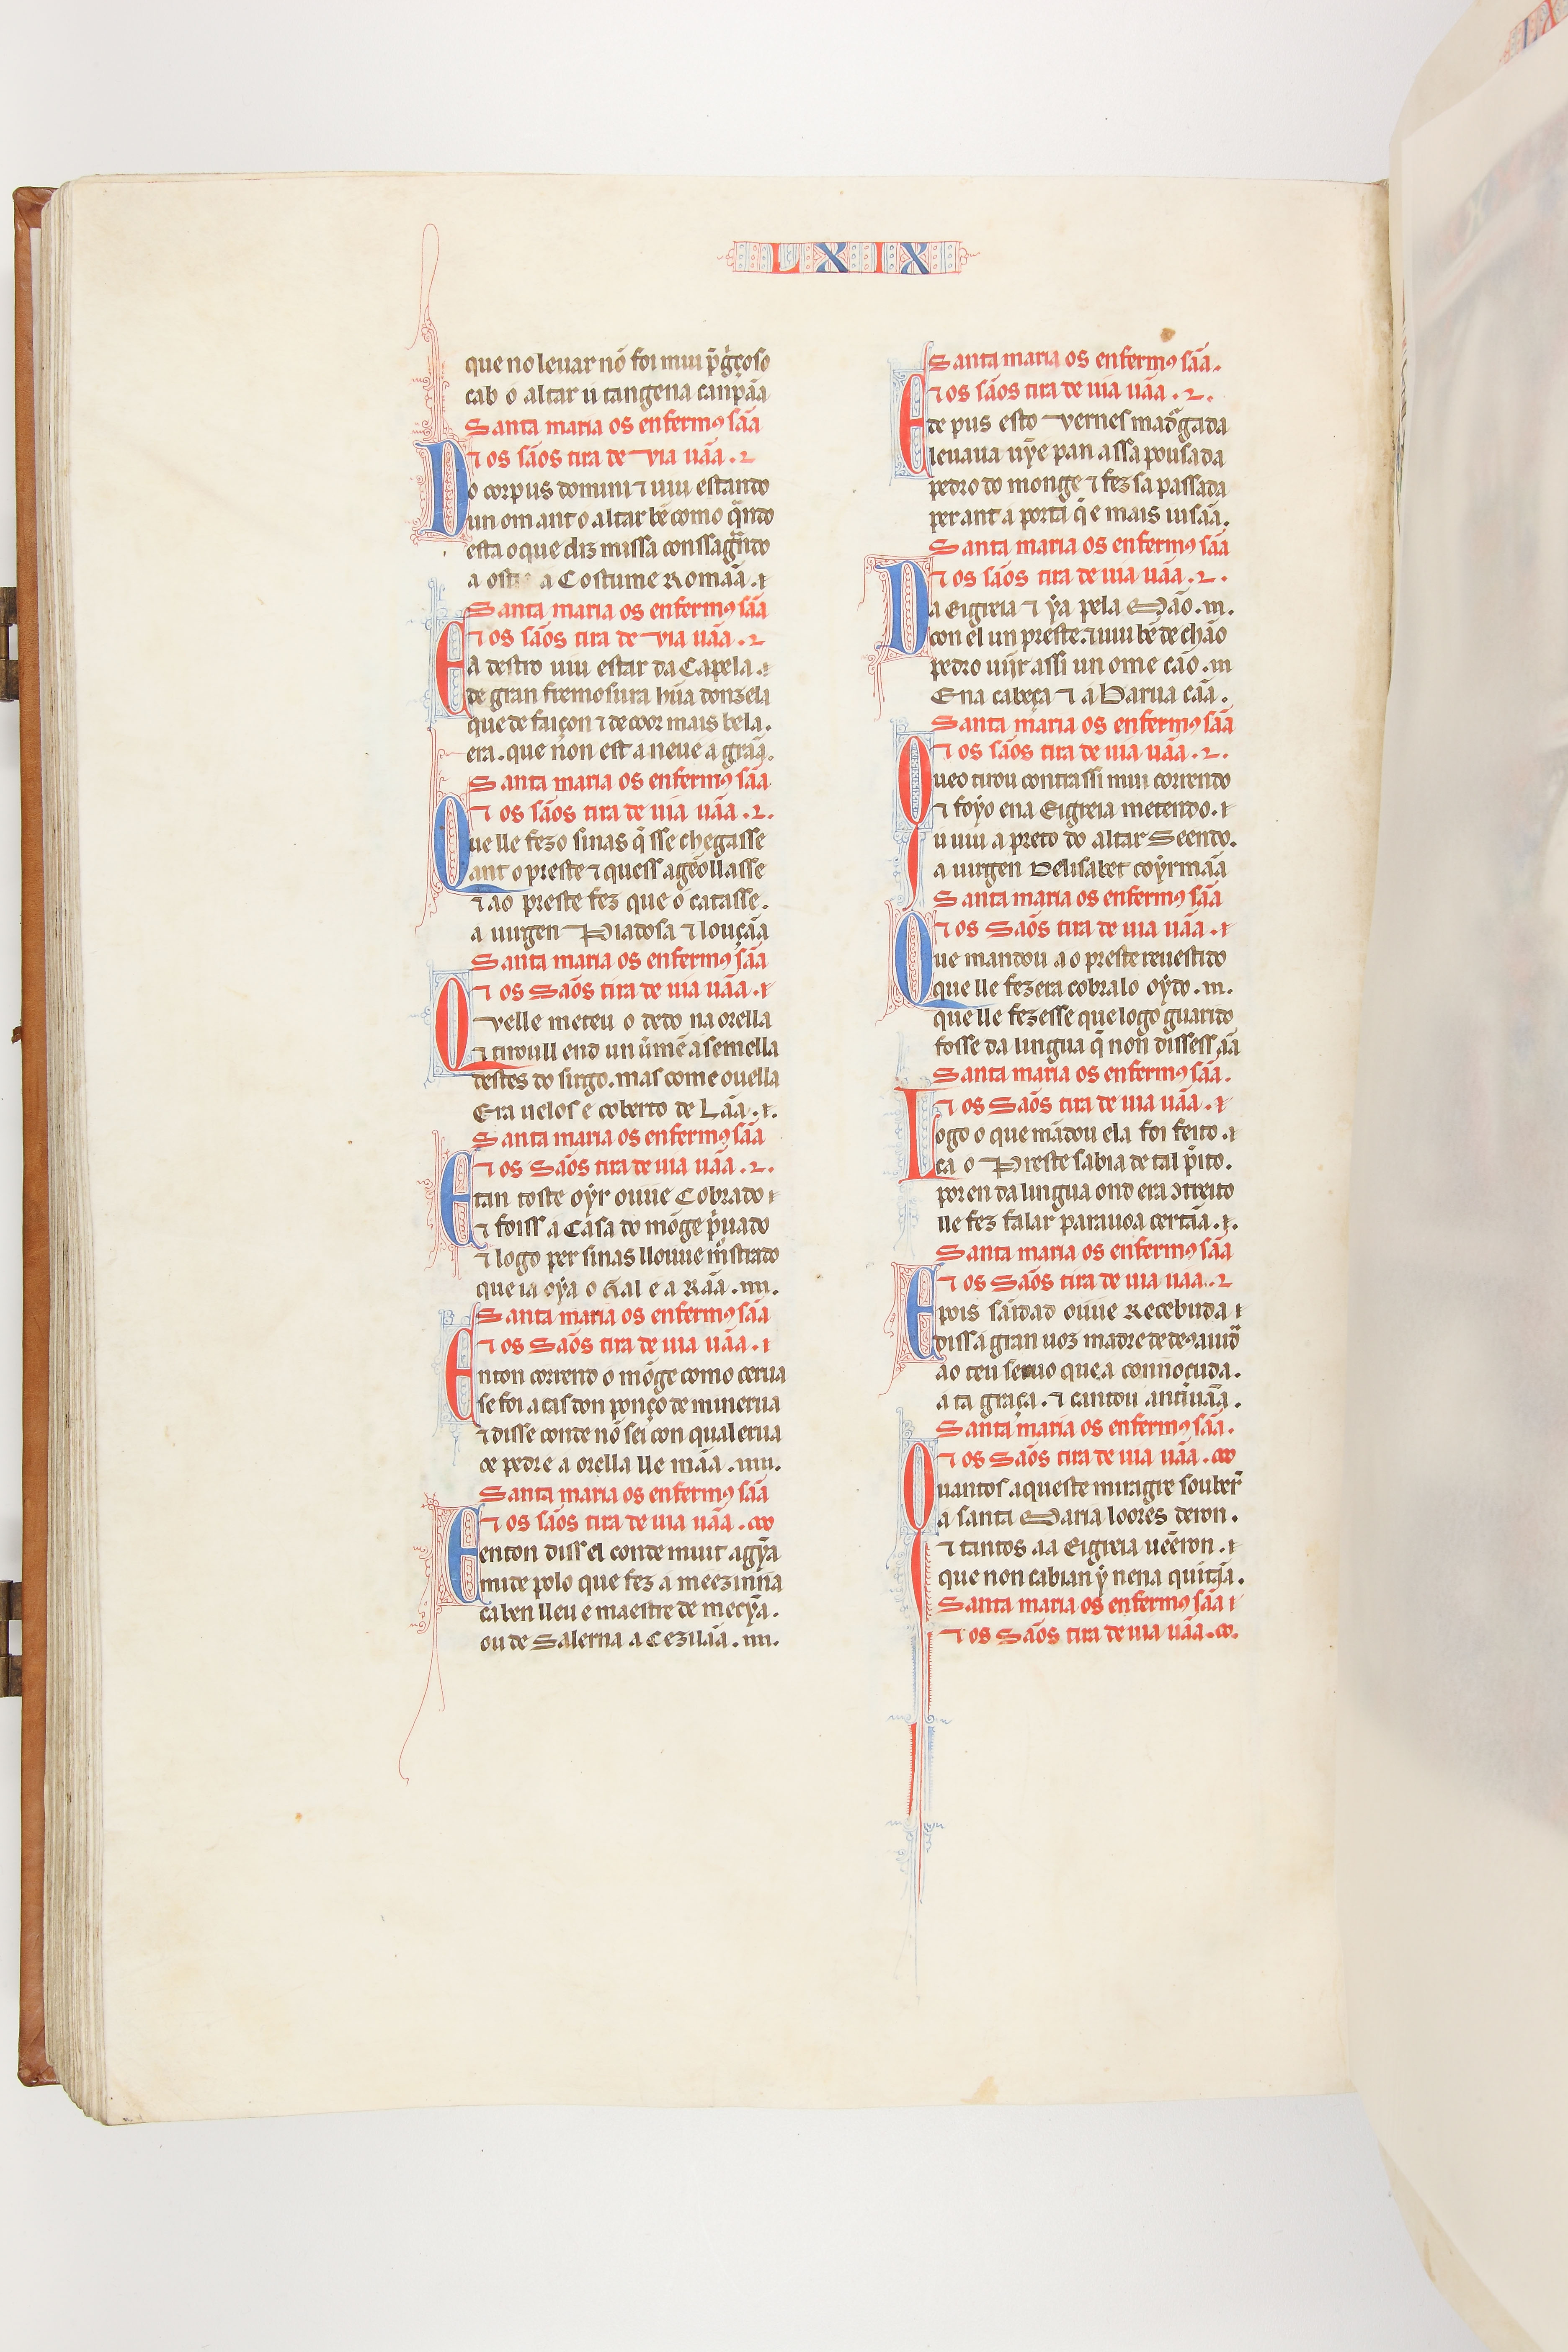 LXIX
que no leuar nõ foi mui p̃g̃çoso
cab o altar u tangena canpãa
Santa maria os enfermꝯ sãa
⁊ os sãos tira de via uãa . 2
Do corpus domini ⁊ uiu estando
un om ant o altar bẽ como q̃ndo
esta o que diz missa conssag̃ndo
a osti a Costume Romãa .
Santa maria os enfermꝯ sãa
⁊ os sãos tira de via uãa . 2
E a destro uiu estar da Capela .
de gran fremosura hũa donzela
que de faiçon ⁊ de coor mais bela .
era . que non est a neue a grãa .
Santa maria os enfermꝯ sãa
⁊ os sãos tira de uia uãa . 2 .
Que lle fezo sinas q̃ sse chegasse
ant o preste ⁊ quess agẽollasse
⁊ ao preste fez que o catasse .
a uirgen Piadosa ⁊ louçãa
Santa maria os enfermꝯ sãa
⁊ os Sãos tira de uia uãa .
Q velle meteu o dedo na orella
⁊ tiroull end un uẽrmẽ a semella
destes do sirgo . mas come ouella
Era uelos e coberto de Lãa .
Santa maria os enfermꝯ sãa
⁊ os Sãos tira de uia uãa . 2 .
E tan toste oyr ouue Cobrado
⁊ foiss a Casa do mõge p̃uado
⁊ logo per sinas llouue mostrado
que ia oya o Gal e a Rãa . m .
Santa maria os enfermꝯ sãa
⁊ os Sãos tira de uia uãa .
Enton correnď o mõge como cerua
se foi a cas don ponço de minerua
⁊ disse conde nõ sei con qual erua
ce pedre a orella lle mãa . m .
Santa maria os enfermꝯ sãa
⁊ os sãos tira de uia uãa .
E enton diss el conde muit agỹa
mide polo que fez a meezinna
ca ben lleu e maestre de mecỹa .
ou de Salerna a Cezilãa . m .
Santa maria os enfermꝯ sãa .
⁊ os sãos tira de uia uãa . 2 .
E de pus esto vernes madᵒgada
leuaua uỹe pan assa pousada
pedro do monge ⁊ fez sa passada
per ant a porta q̃ e mais iusãa .
Santa maria os enfermꝯ sãa
⁊ os sãos tira de uia uãa . 2 .
Da Eigreia ⁊ ỹa pela Mão . m .
con el un preste . ⁊ uiu bẽ de chão
pedro uĩjr assi un ome cão . m
Ena cabeça ⁊ a Barua cãa .
Santa maria os enfermꝯ sãa
⁊ os sãos tira de uia uãa . 2 .
Queo tirou contrassi mui correndo
⁊ foyo ena Eigreia metendo .
u uiu a preto do altar Seendo .
a uirgen Delisabet coyrmãa
Santa maria os enfermꝯ sãa
⁊ os Sãos tira de uia uãa .
Que mandou ao preste reuestido
que lle fezera cobralo oydo . m .
que lle fezesse que logo guarido
fosse da lingua q̃ non dissess ãa
Santa maria os enfermꝯ sãa .
⁊ os Sãos tira de uia uãa .
Logo o que mãdou ela foi feito .
ca o Preste sabia de tal p̃ito .
por en da lingua ond era ꝯtreito
lle fez falar parauoa certãa .
Santa maria os enfermꝯ sãa
⁊ os Sãos tira de uia uãa . 2
E pois sãidad ouue Recebuda
diss a gran uoz madre de deꝯ aiuda
ao teu seruo que a connoçuda .
a ta graça . ⁊ cantou antiuãa .
Santa maria os enfermꝯ sãa .
⁊ os Sãos tira de uia uãa .
Quantos aqueste miragre souber̃
a santa Maria loores deron .
⁊ tantos aa Eigreia uẽeron .
que non cabian y nena quitãa .
Santa maria os enfermꝯ sãa
⁊ os Sãos tira de uia uãa .